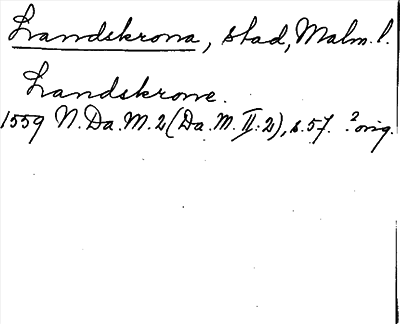 Landskrona, stad, Malm. l.
Landskrone.
1559 N. Da. M. 2 (Da. M. II:2), s. 57. ? orig.